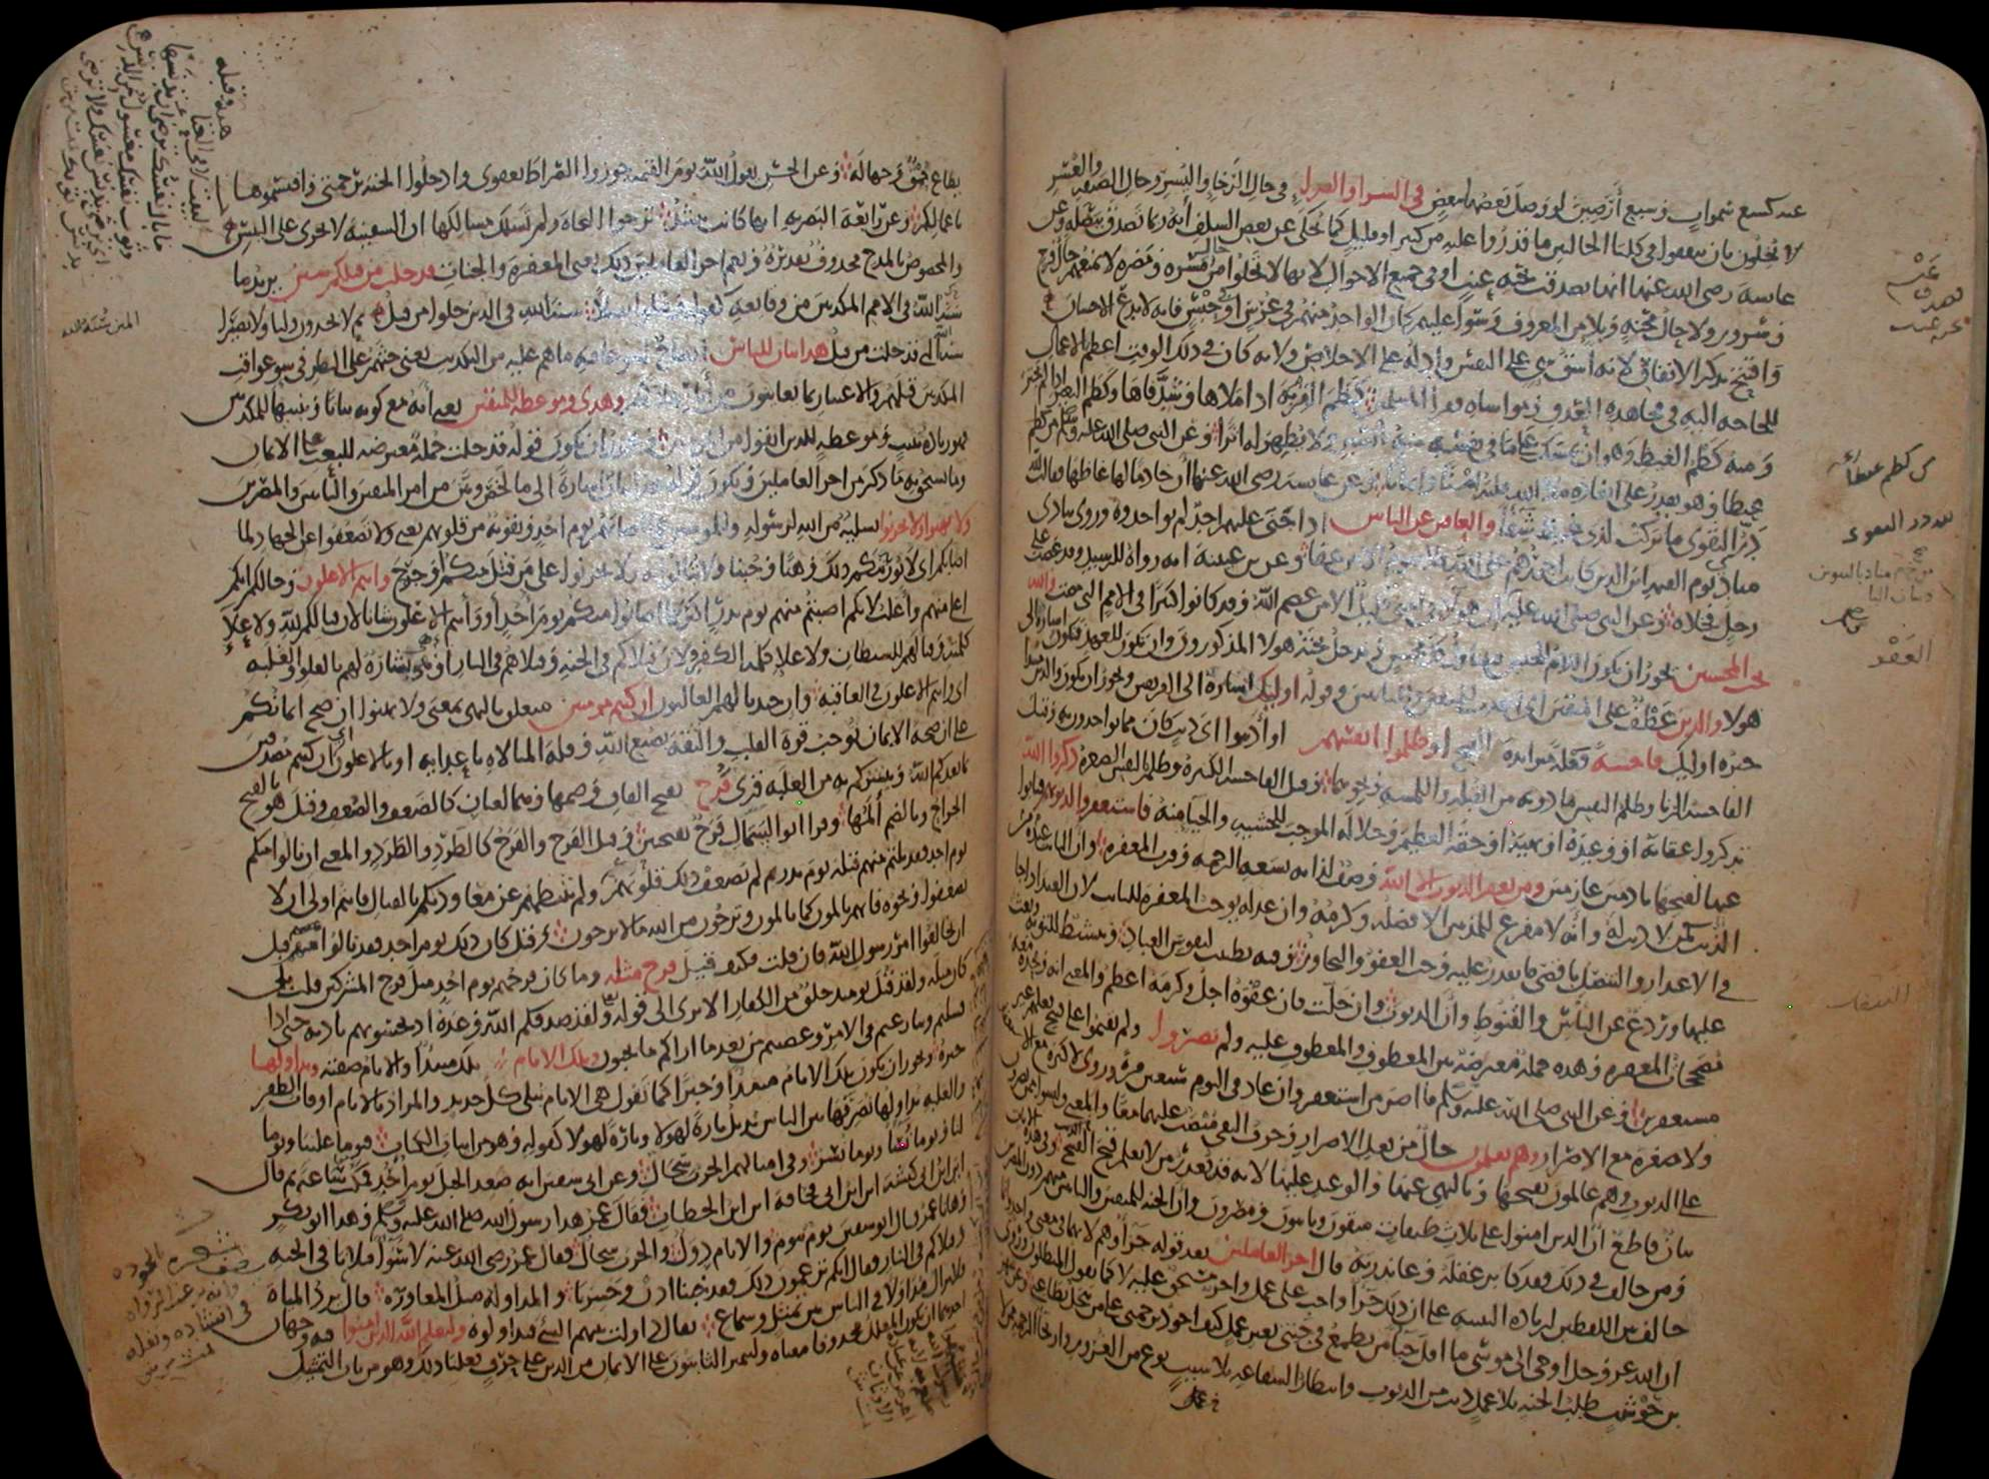 عند كسبع سموات وسبع أرضين لو وصل بعضها ببعض في السراء والضراء في حال الرخاء واليسر وحال الضيقة والعسر
لا يخلون بأن ينفقوا في كلتا الحالتين ما قدروا عليه من كثير أو قليل كما يحكى عن بعض السلف أنه ربما تصدق ببصلة وعن
عائشة رضي الله عنها أنها تصدقت بحبة عنب أو في جميع الأحوال لأنها لا تخلوا من حال مسرة ومضرة لا تمنعهم حال فرح
وسرور ولا حال محنة وبلاء من المعروف وسواء عليهم كان الواحد منهم في عرس أو في حبس فإنه لا يدع الإحسان
وافتتح بذكر الإنفاق لأنه أشق شيء على النفس وأدله على الإخلاص ولأنه كان في ذلك الوقت أعظم الأعمال
للحاجة إليه في مجاهدة العدو ومواساة فقراء المسلمين كظم القربة إذا ملأها وشد فاها وكظم البعير إذا لم يجتر
ومنه كظم الغيظ وهو أن يمسك على ما في نفسه منه بالصبر ولا يظهر له أثرا وعن النبي صلى الله عليه وسلم من كظم
غيظا وهو يقدر على إنفاذه ملأ الله قلبه أمنا وإيمانا وعن عائشة رضي الله عنها أن خادما لها غاظها فقالت لله
در التقوى ما تركت لذي غيظ شفاء والعافين عن الناس إذا جنى عليهم أحد لم يؤاخذوه وروى ينادي
مناد يوم القيمة أين الذين كانت أجورهم على الله فلا يقوم إلا من عفا وعن بن عيينة أنه رواه للرشيد وقد غضب على
رجل فخلاه وعن النبي صلى الله عليه إن هؤلاء في أمتي قليل إلا من عصم الله وقد كانوا كثيرا في الأمم التي مضت والله
يحب المحسنين يجوز أن يكون اللام للجنس فيتناول كل محسن ويدخل تحته هؤلاء المذكورون وأن يكون للعهد فيكون إشارة إلى
هؤلاء والذين عطف على المتقين أي أعدت للمتقين وللتائبين وقوله أولئك إشارة إلى الفريقين ويجوز أن يكون والذين مبتدأ
خبره أولئك فاحشة فعلة متزايدة القبح أو ظلموا أنفسهم أو أذنبوا أي ذنب كان مما يؤاخذون به وقيل
الفاحشة الزنا وظلم النفس ما دونه من القبلة واللمسة ونحوهما وقيل الفاحشة الكبيرة وظلم النفس الصغيرة ذكروا الله
تذكروا عقابه أو وعيده أو نهيه أو حقه العظيم وجلاله الموجب للخشية والحياء منه فاستغفروا لذنوبهم فتابوا
عنها لقبحها نادمين عازمين ومن يغفر الذنوب إلا الله وصف لذاته بسعة الرحمة وقرب المغفرة وأن التائب عنده كمن
لا ذنب له وأنه لا مفزع للمذنبين إلا فضله وكرمه وأن عدله يوجب المغفرة للتائب لأن العبد إذا جاء
في الاعتذار والتنصل بأقصى ما يقدر عليه وجب العفو والتجاوز وفيه تطييب لنفوس العباد وتنشيط للتوبة وبعث
عليها وردع عن اليأس والقنوط وأن الذنوب وإن جلت فإن عفوه أجل وكرمه أعظم والمعنى أنه وحده معه
مصححات المغفرة وهذه جملة معترضة بين المعطوف والمعطوف عليه ولم يصروا ولم يقيموا على قبيح فعلهم غير
مستغفرين وعن النبي صلى الله عليه وسلم ما أصر من استغفر وإن عاد في اليوم سبعين مرة وروي لا كبيرة مع الاستغفار
ولا صغيرة مع الإصرار وهم يعلمون حال من فعل الإصرار وحرف النفي منصب عليهما معا والمعنى وليسوا ممن يصر
على الذنوب وهم عالمون بقبحها وبالنهي عنها والوعيد عليها لأنه قد يعذر من لا يعلم قبح القبيح وفي هذه الآيات
بيان قاطع أن الذين آمنوا على ثلاث طبقات متقون وتائبون ومصرون وأن الجنة للمتقين والتائبين منهم دون المصرين
ومن خالف في ذلك فقد كابر عقله وعاند ربه قال أجر العاملين بعد قوله جزاؤهم لأنهما في معنى واحد وإنما
خالف بين اللفظين لزيادة التنبيه على أن ذلك جزاء واجب على عمل وأجر مستحق عليه لا كما يقول المبطلون وروي
أن الله عز وجل أوحى إلى موسى ما أقل حياء من يطمع في جنتي بغير عمل كيف أجود برحمتي على من يبخل بطاعتي وعن شهر
بن حوشب طلب الجنة بلا عمل ذنب من الذنوب وانتظار الشفاعة بلا سبب نوع من الغرور وارتجاء الرحمة ممن لا
يطاع حمق وجهالة وعن الحسن يقول الله يوم القيمة جوزوا الصراط بعفوي وادخلوا الجنة برحمتي واقتسموها
بأعمالكم وعن رابعة البصرية أنها كانت تنشد ترجوا النجاة ولم تسلك مسالكها إن السفينة لا تجري على اليبس
والمخصوص بالمدح محذوف تقديره ونعم أجر العاملين ذلك يعني المغفرة والجنات قد خلت من قبلكم سنن يريد ما
سنه الله في الأمم المكذبين من وقائعه كقوله وقتلوا تقتيلا سنة الله في الذين خلوا من قبل ثم لا يجدون وليا ولا نصيرا
سنة الله التي قد خلت من قبل هذا بيان للناس إيضاح لسوء عاقبة ما هم عليه من التكذيب يعني حثهم على النظر في سوء عواقب
المكذبين قبلهم والاعتبار بما يعاينون من آثار هلاكهم وهدى وموعظة للمتقين يعني أنه مع كونه بيانا وتنبيها للمكذبين
فهو زيادة تثبيت وموعظة للذين اتقوا من المؤمنين ويجوز أن يكون قوله قد خلت جملة معترضة للبعث على الإيمان
وما يستحق به ما ذكر من أجر العاملين ويكون قوله هذا بيان إشارة إلى ما لخص وبين من أمر المتقين والتائبين والمصرين
ولا تهنوا ولا تحزنوا تسلية من الله لرسوله وللمؤمنين عما أصابهم يوم أحد وتقوية من قلوبهم يعني ولا تضعفوا عن الجهاد لما
أصابكم أي لا يورثنكم ذلك وهنا وجبنا ولا تبالوا به ولا تحزنوا على من قتل منكم وجرح وأنتم الأعلون وحالكم أنكم
أعلى منهم وأغلب لأنكم أصبتم منهم يوم بدر أكثر مما أصابوا منكم يوم أحد أو وأنتم الأعلون شأنا لأن قتالكم لله ولإعلاء
كلمته وقتالهم للشيطان ولإعلاء كلمة الكفر ولأن قتلاكم في الجنة وقتلاهم في النار أو هي بشارة لهم بالعلو والغلبة
أي وأنتم الأعلون في العاقبة وإن جندنا لهم الغالبون إن كنتم مؤمنين متعلق بالنهي بمعنى ولا تهنوا إن صح إيمانكم
على أن صحة الإيمان توجب قوة القلب والثقة بصنع الله وقلة المبالاة بأعدائه أو بالأعلون أي إن كنتم مصدقين
بما يعدكم الله ويبشركم به من الغلبة قرئ قرح بفتح القاف وضمها وهما لغتان كالضعف والضعف وقيل هو بالفتح
الجراح وبالضم ألمها وقرأ أبو السمال قرح بفتحتين وقيل القرح والقرح كالطرد والطرد والمعنى إن نالوا منكم
يوم أحد فقد نلتم منهم قبله يوم بدر ثم لم يضعف ذلك قلوبهم ولم يثبطهم عن معاودتكم بالقتال فأنتم أولى أن لا
تضعفوا ونحوه فإنهم يألمون كما تألمون وترجون من الله ما لا يرجون وقيل كان ذلك يوم أحد فقد نالوا منهم قبل
أن يخالفوا أمر رسول الله فإن قلت فكيف قيل قرح مثله وما كان قرحهم يوم أحد مثل قرح المشركين قلت بلى
كان مثله ولقد قتل يومئذ خلق من الكفار ألا ترى إلى قوله ولقد صدقكم الله وعده إذ تحسونهم بإذنه حتى إذا
فشلتم وتنازعتم في الأمر وعصيتم من بعد ما أراكم ما تحبون وتلك الأيام تلك مبتدأ والأيام صفته ونداولها
خبره ويجوز أن يكون تلك الأيام مبتدأ وخبرا كما تقول هي الأيام تبلي كل جديد والمراد بالأيام أوقات الظفر
والغلبة نداولها نصرفها بين الناس نديل تارة لهؤلاء وتارة لهؤلاء كقوله وهو من أبيات الكتاب فيوما علينا ويوما
لنا ويوما نساء ويوما نسر وفي أمثالهم الحرب سجال وعن أبي سفين أنه صعد الجبل يوم أحد فمكث ساعة ثم قال
أين ابن أبي كبشة أين ابن أبي قحافة أين ابن الخطاب فقال عمر هذا رسول الله صلى الله عليه وسلم وهذا أبو بكر
وها أنا عمر فقال أبو سفين يوم بيوم والأيام دول والحرب سجال فقال عمر رضي الله عنه لا سواء قتلانا في الجنة
وقتلاكم في النار فقال إنكم تزعمون ذلك فقد خبنا إذن وخسرنا والمداولة مثل المعاورة قال يرد المياه
فلا يزال مداولا في الناس بين تمثل وسماع يقال داولت بينهم الشيء فتداولوه وليعلم الله الذين آمنوا فيه وجهان
أحدهما أن يكون المعلل محذوفا معناه وليتميز الثابتون على الإيمان من الذين على حرف فعلنا ذلك وهو من باب التمثيل